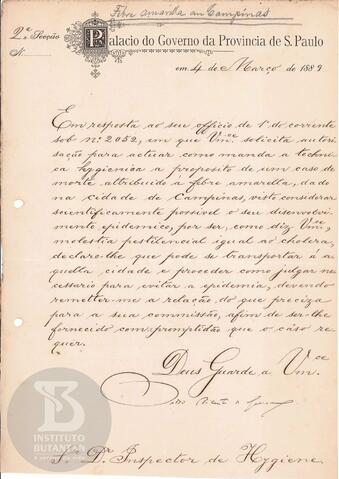 Febre amarella em Campinas
2ª Secção
N.
Palacio do Governo da Provincia de S. Paulo
em 4 de Março de 1889
Em resposta ao seu officio de 1º do corrente
sob nº 2052, em que Vmce solicita autori-
sação para actuar como manda a techni-
ca hygienica a proposito de um caso de
morte attribuido á febre amarella, dado
na cidade de Campinas, visto considerar
scientificamente possivel o seu desenvolvi-
mento epidemico, por ser, como diz Vmce,
molestia pestilencial igual ao cholera,
declaro-lhe que pode se transportar á a
quella cidade e proceder como julgar ne
cessario para evitar a epidemia, devendo
remetter-me a relação do que preciza
para a sua commissão, afim de ser-lhe
fornecido com promptidão que o caso re
quer.
Deus Guarde a Vmce
Pedro Vicente de
Sr. Dr. Inspector de Hygiene
INSTITUTO
BUTANTAN